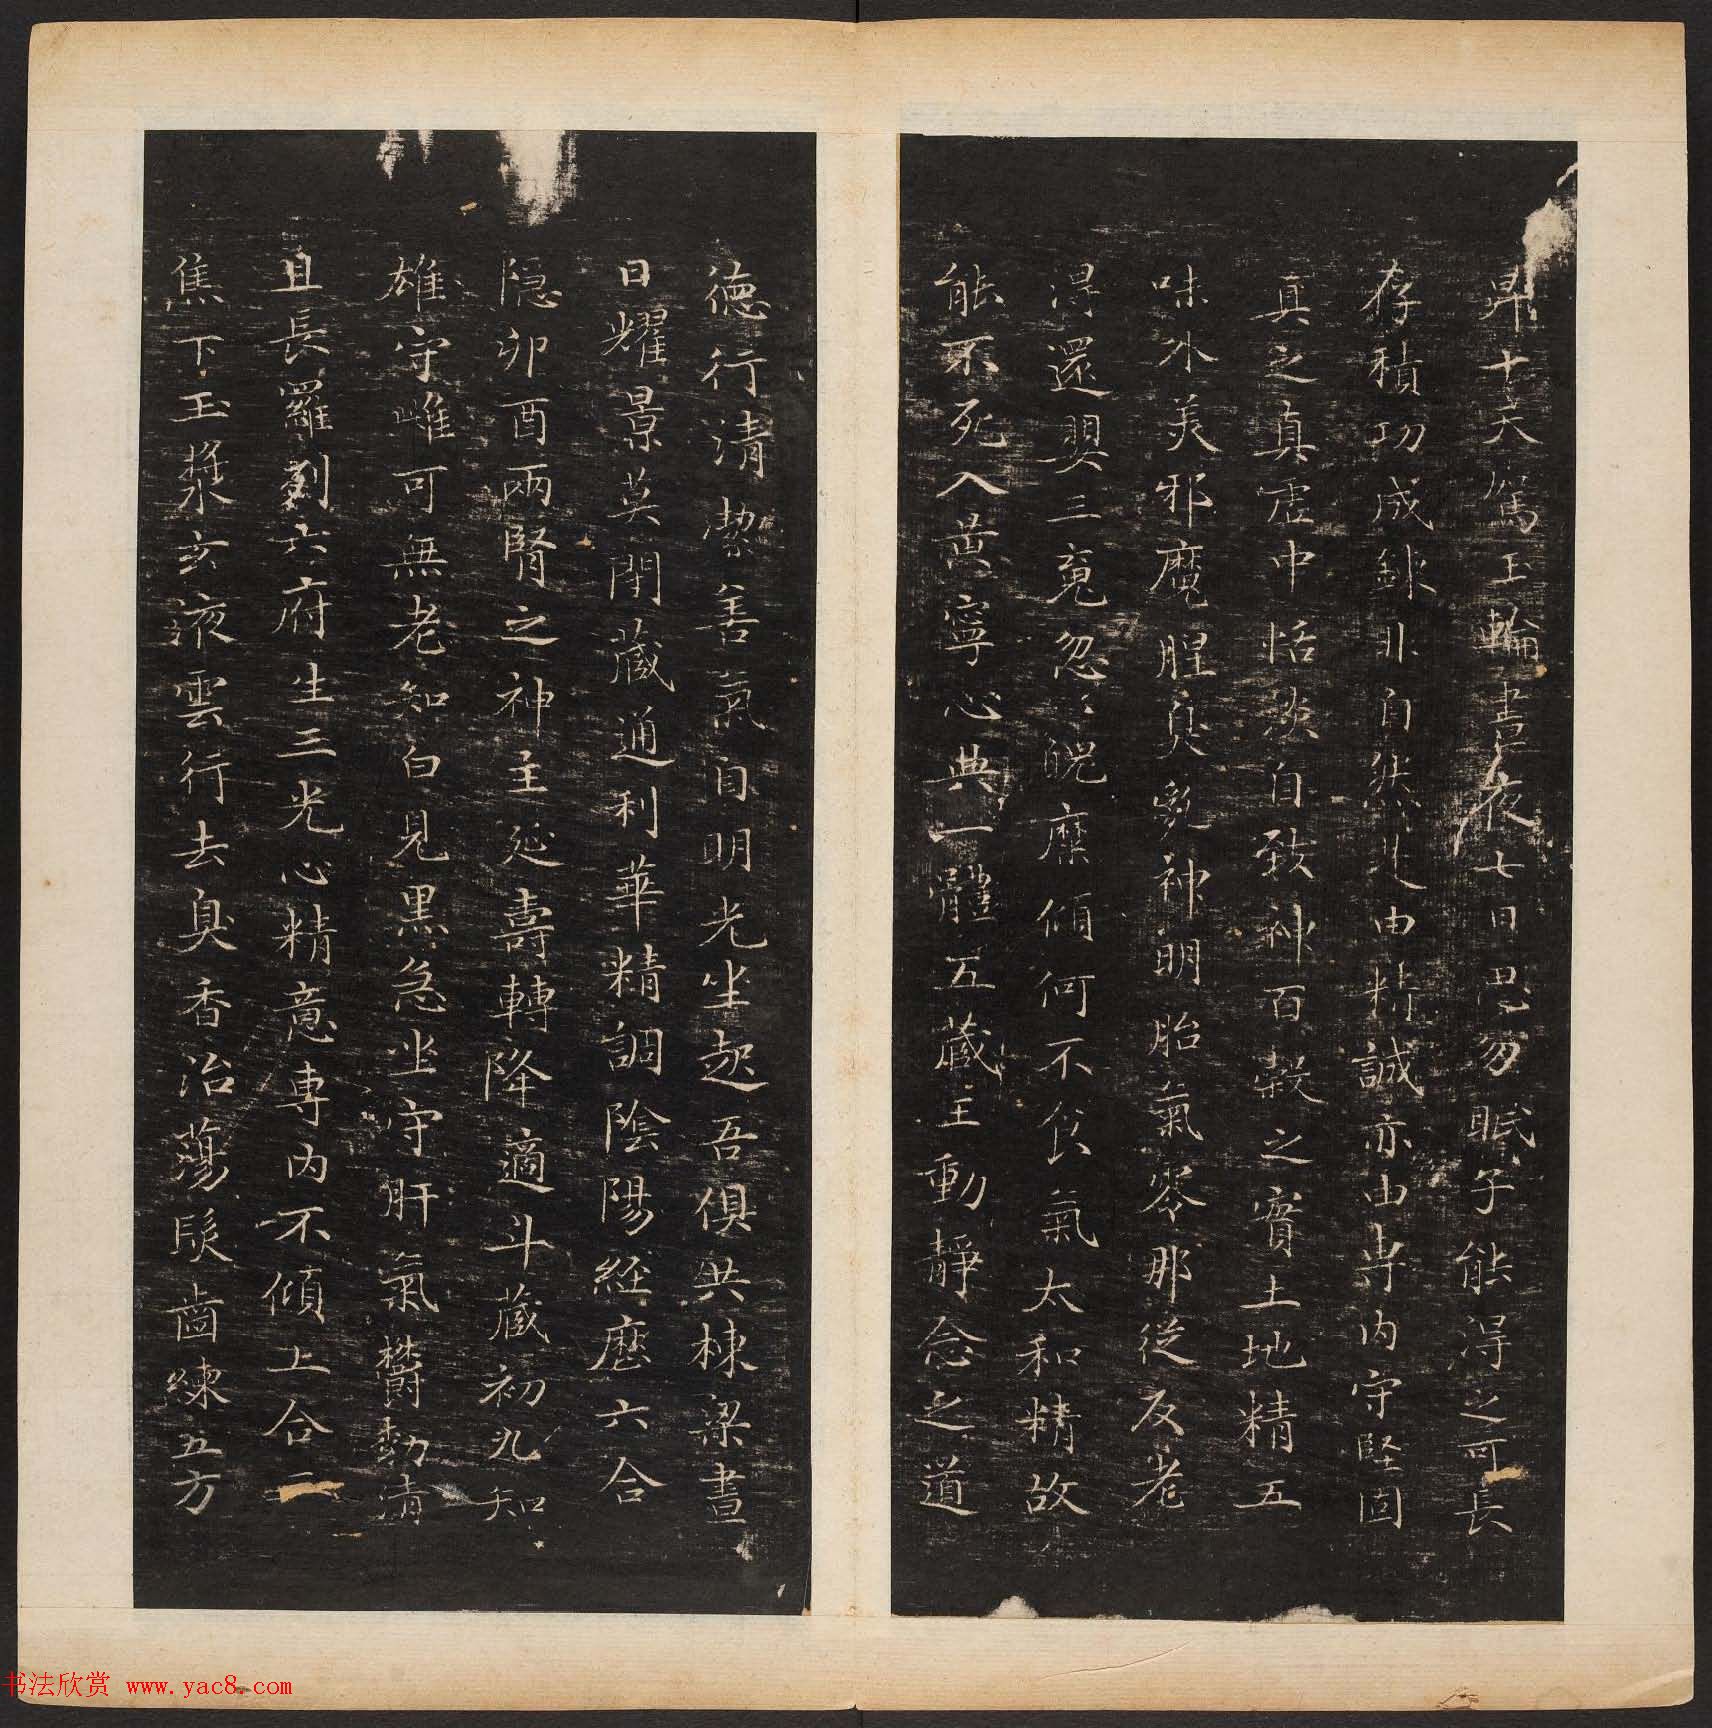 昇十天駕玉輪晝夜七日思勿眠子能得之可長
存積功成鍊非自然是由精誠亦由專內守堅固
真之真虛中恬淡自致神百穀之實土地精五
味外美邪魔腥臭亂神明胎氣零那從反老
得還與三竟忽〻皝糜傾何不食氣太和精故
能不死入黃寧心典一體五藏王動靜念之道
德行清潔善氣自明光坐起吾俱共棟梁晝
日耀景莫閉藏通利華精調陰陽經歷六合
隱卯酉兩腎之神主延壽轉降適斗藏初九知
雄守雌可無老知白見黑急坐守肝氣欝勃清
且長羅列六府生三光心精意專內不傾上合三
焦下玉漿玄液雲行去臭香治蕩髮齒練五方
书法欣赏 www.yac8.com